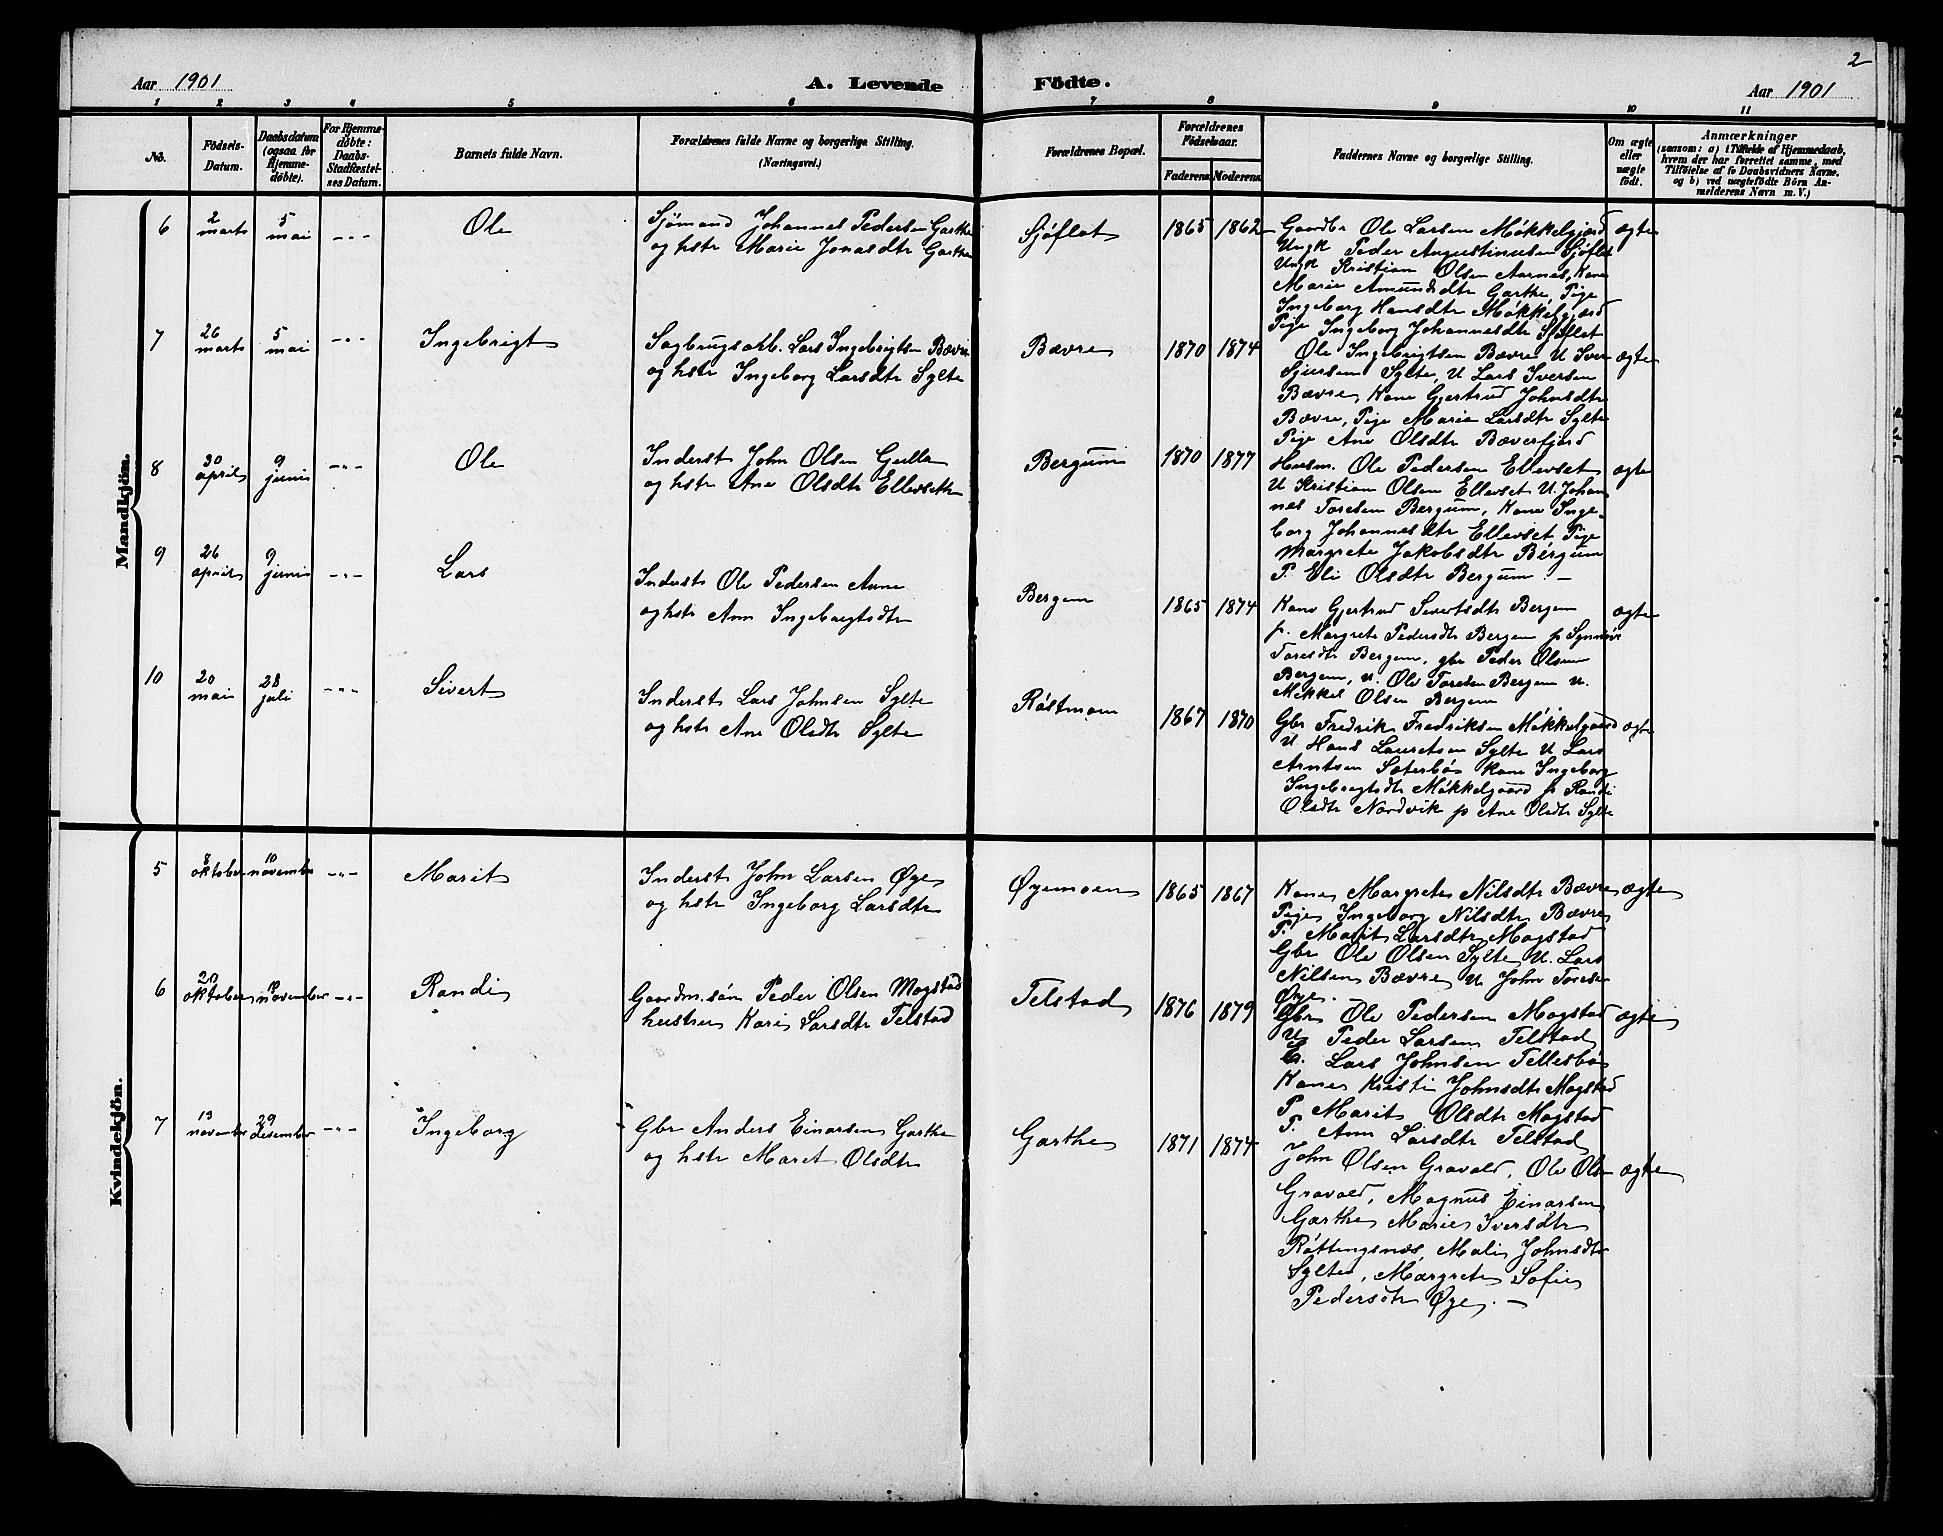 2
Aar 1901
A. Levende Födte.
Aar 1901
1 2 3 4 5 6 7 8 9 10 11
No.
Födsels-
Datum.
Daabsdatum
(ogsaa for
Hjemme-
döbte).
For Hjemme-
döbte:
Daabs-
Stadfæstel-
ses Datum.
Barnets fulde Navn.
Forældrenes fulde Navne og borgerlige Stilling.
(Næringsvei.)
Forældrenes Bopæl.
Forældrenes
Födselsaar.
Faderens. Moderens.
Faddernes Navne og borgerlige Stilling.
Om ægte
eller
uægte
födt.
Anmærkninger
(saasom: a) i Tilfælde af Hjemmedaab,
hvem der har forrettet samme, med
Tilföielse af to Daabsvidners Navne.
og b) ved uægtefödte Börn An-
melderens Navn m. V.)
Mandkjön.
6
2
marts
5
mai
-"-
Ole
Sjømand Johannes Pedersen Garthe
og hstr Marie Jonasdtr Garthe
Sjøflot
1865 1862
Gaardbr Ole Larsen Møkkelgjerd
Ungk Peder Augustinusen Sjøflot
Ungk Kristian Olsen Aarnes, Kone
Marie Amundsdtr Garthe, Pige
Ingeborg Hansdtr Møkkelgjerd
Pige Ingeborg Johannesdtr Sjøflot
ægte
7
26
marts
5
mai
-"-
Ingebrigt
Sagbrugsarb. Lars Ingebrigtsen Bævre
og hstr Ingeborg Larsdtr Sylte
Bævre
1870 1874
Ole Ingebrigtsen Bævre U Iver
Sjursen Sylte, U Lars Iversen
Bævre, Kone Gjertrud Johnsdtr
Bævre, Pige Marie Larsdtr Sylte
Pige Ane Olsdtr Bæverfjord
ægte
8
30
april
9
juni
-"-
Ole
Inderst John Olsen Gulla
og hstr Ane Olsdtr Ellevseth
Bergum
1870 1877
Husm. Ole Pedersen Ellevset
U Kristian Olsen Ellevset U. Johan
nes Toresen Bergum, Kone Inge-
borg Johannesdtr Ellevset Pige
Margrete Jakobsdtr Bergum
P. Eli Olsdtr Bergum. -
ægte
9
26
april
9
juni
-"-
Lars
Inderst Ole Pedersen Aune
og hstr Ane Ingebrigtsdtr
Bergem
1865 1874
Kone Gjertrud Sivertsdtr Bergem
p. Margrete Pedersdtr Bergem p Synnøve
Toresdtr Bergem, gbr Peder Olsen
Bergem, u. Ole Toresen Bergem u.
Mikkel Olsen Bergem
ægte
10
20
mai
28
juli
-"-
Sivert
Inderst Lars Johnsen Sylte
og hstr Ane Olsdtr Sylte
Røstmoen
1867 1870
Gbr Fredrik Fredriksen Møkkelgaard
U Hans Lauretsen Sylte U Lars
Arntsen Sæterbø Kone Ingeborg
Ingebrigtsdtr Møkkelgaard p Randi
Olsdtr Nordvik p Ane Olsdtr Sylte
ægte
Kvindekjön.
5
8
oktober
10
november
-"-
Marit
Inderst John Larsen Øye
og hstr Ingeborg Larsdtr
Øyemoen
1865 1867
Kone Margrete Nilsdtr Bævre
Pige Ingeborg Nilsdtr Bævre
P. Marit Larsdtr Mogstad
Gbr Ole Olsen Sylte U. Lars
Nilsen Bævre U John Toresen
Øye.
ægte
6
20
oktober
november
-"-
Randi
Gaardm.søn Peder Olsen Mogstad
hustru Kari Larsdtr Telstad
Telstad
1876 1879
Gbr Ole Pedersen Mogstad
U Peder Larsen Telstad
U. Lars Johnsen Tellesbø
Kone Kristi Johnsdtr Mogstad
P. Marit Olsdtr Mogstad
P. Ane Larsdtr Telstad
ægte
7
13
november
29
desember
-"-
Ingeborg
Gbr Anders Einarsen Garthe
og hstr Maret Olsdtr
Garthe
1871 1874
John Olsen Gravold, Ole Olsen
Gravold, Magnus Einarsen
Garthe Marie Iversdtr
Røttingsnæs, Mali Johnsdtr
Sylte, Margrete Sofie
Pedersdtr Øye. -
ægte